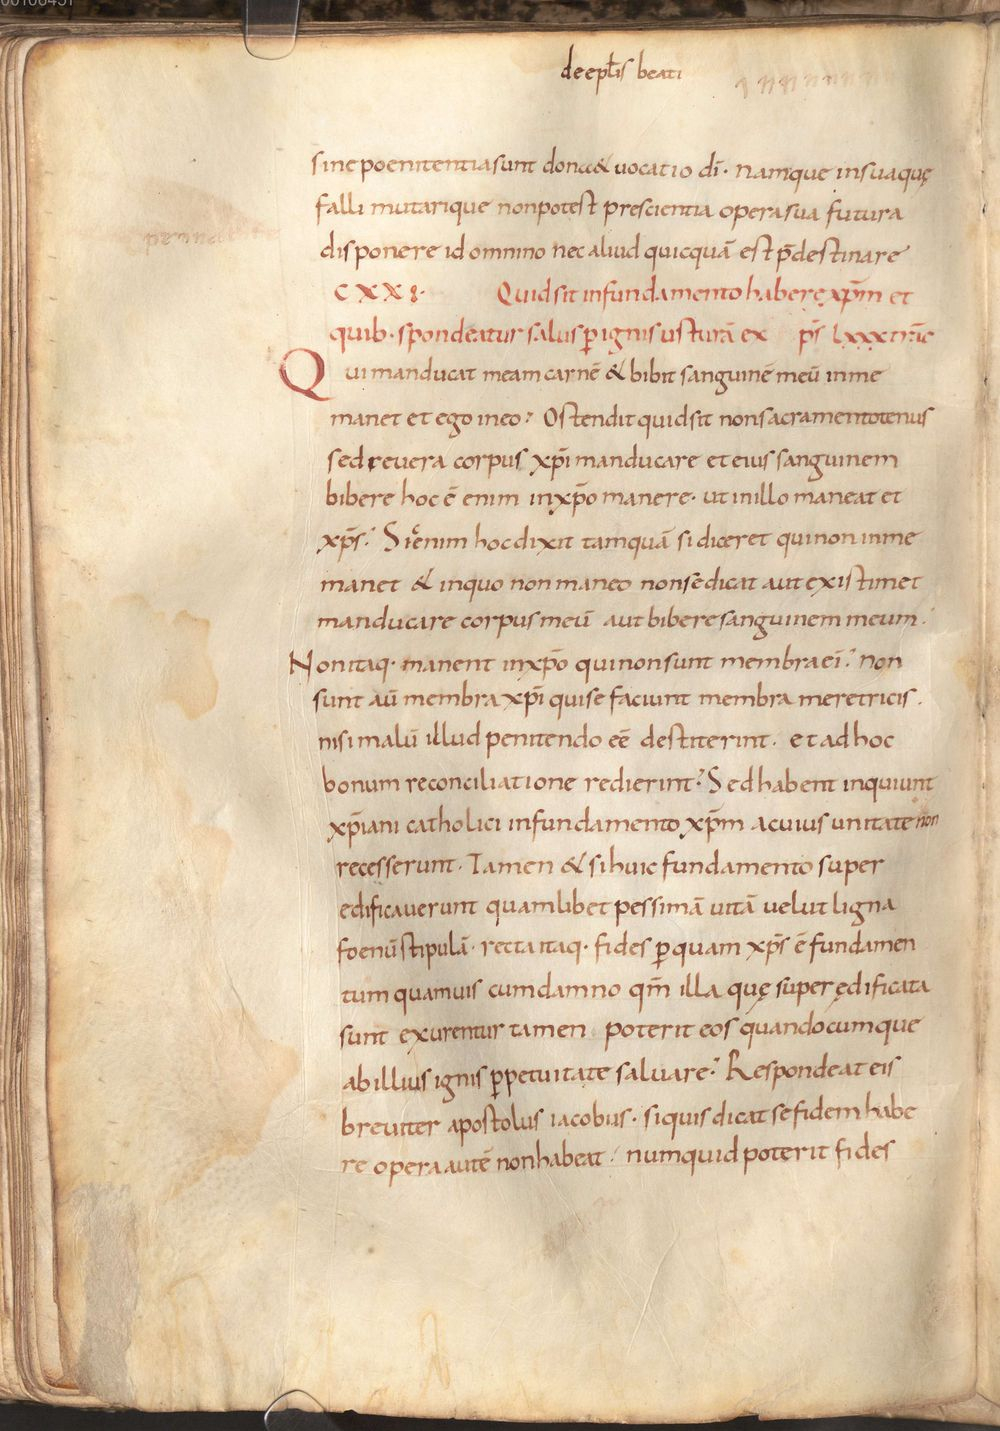 de eptis beati
sine poenitentia sunt dona & uocatio dī. namque in sua quę
falli mutarique non potest prescientia opera sua futura
disponere id omnino nec aliud quicquā est p̄destinare
CXXI. Quid sit in fundamento habere xp̄m et
quib. spondeatur salus p ignis usturā ex
Qui manducat meam carnē & bibit sanguinē meū in me
manet et ego in eo. Ostendit quid sit non sacramento tenus
sed reuera corpus xp̄i manducare et eius sanguinem
bibere hoc ē enim in xp̄o manere. ut in illo maneat et
xp̄s. Sic enim hoc dixit tamquā si diceret qui non in me
manet & in quo non maneo non se dicat aut existimet
manducare corpus meū aut bibere sanguinem meum.
Non itaq. manent in xp̄o qui non sunt membra eī. non
sunt aū membra xp̄i qui se faciunt membra meretricis.
nisi malū illud penitendo eē destiterint. et ad hoc
bonum reconciliatione redierint. Sed habent inquiunt
xp̄iani catholici in fundamento xp̄m a cuius unitate non
recesserunt. Tamen & si huic fundamento super
edificauerunt quamlibet pessimā uitā uelut ligna
foenū stipulā. recta itaq. fides p quam xp̄s ē fundamen
tum quamuis cum damno qm̄ illa quę super ędificata
sunt exurentur tamen poterit eos quandocumque
ab illius ignis ppetuitate saluare. Respondeat eis
breuiter apostolus iacobus. si quis dicat se fidem habe
re opera autē non habeat. numquid poterit fides